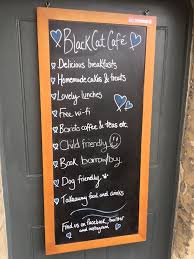 BlackCat Café
Delicious breakfasts
Homemade cakes & treats
Lovely lunches
Free wi-fi
Barista coffee & teas etc.
Child friendly
Book borrow/buy
Dog friendly
Takeaway food and drinks
Find us on facebook, twitter
and instagram